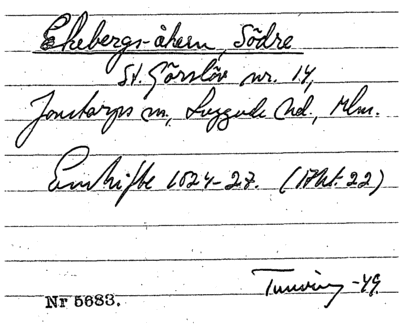 Ekebergs-åkern, Södre
St. Görslöv nr. 14,
Jonstorps sn, Luggude hd., Mlm.
Enskifte 1824-27. (Akt. 22)
Nr 5683.
-49.